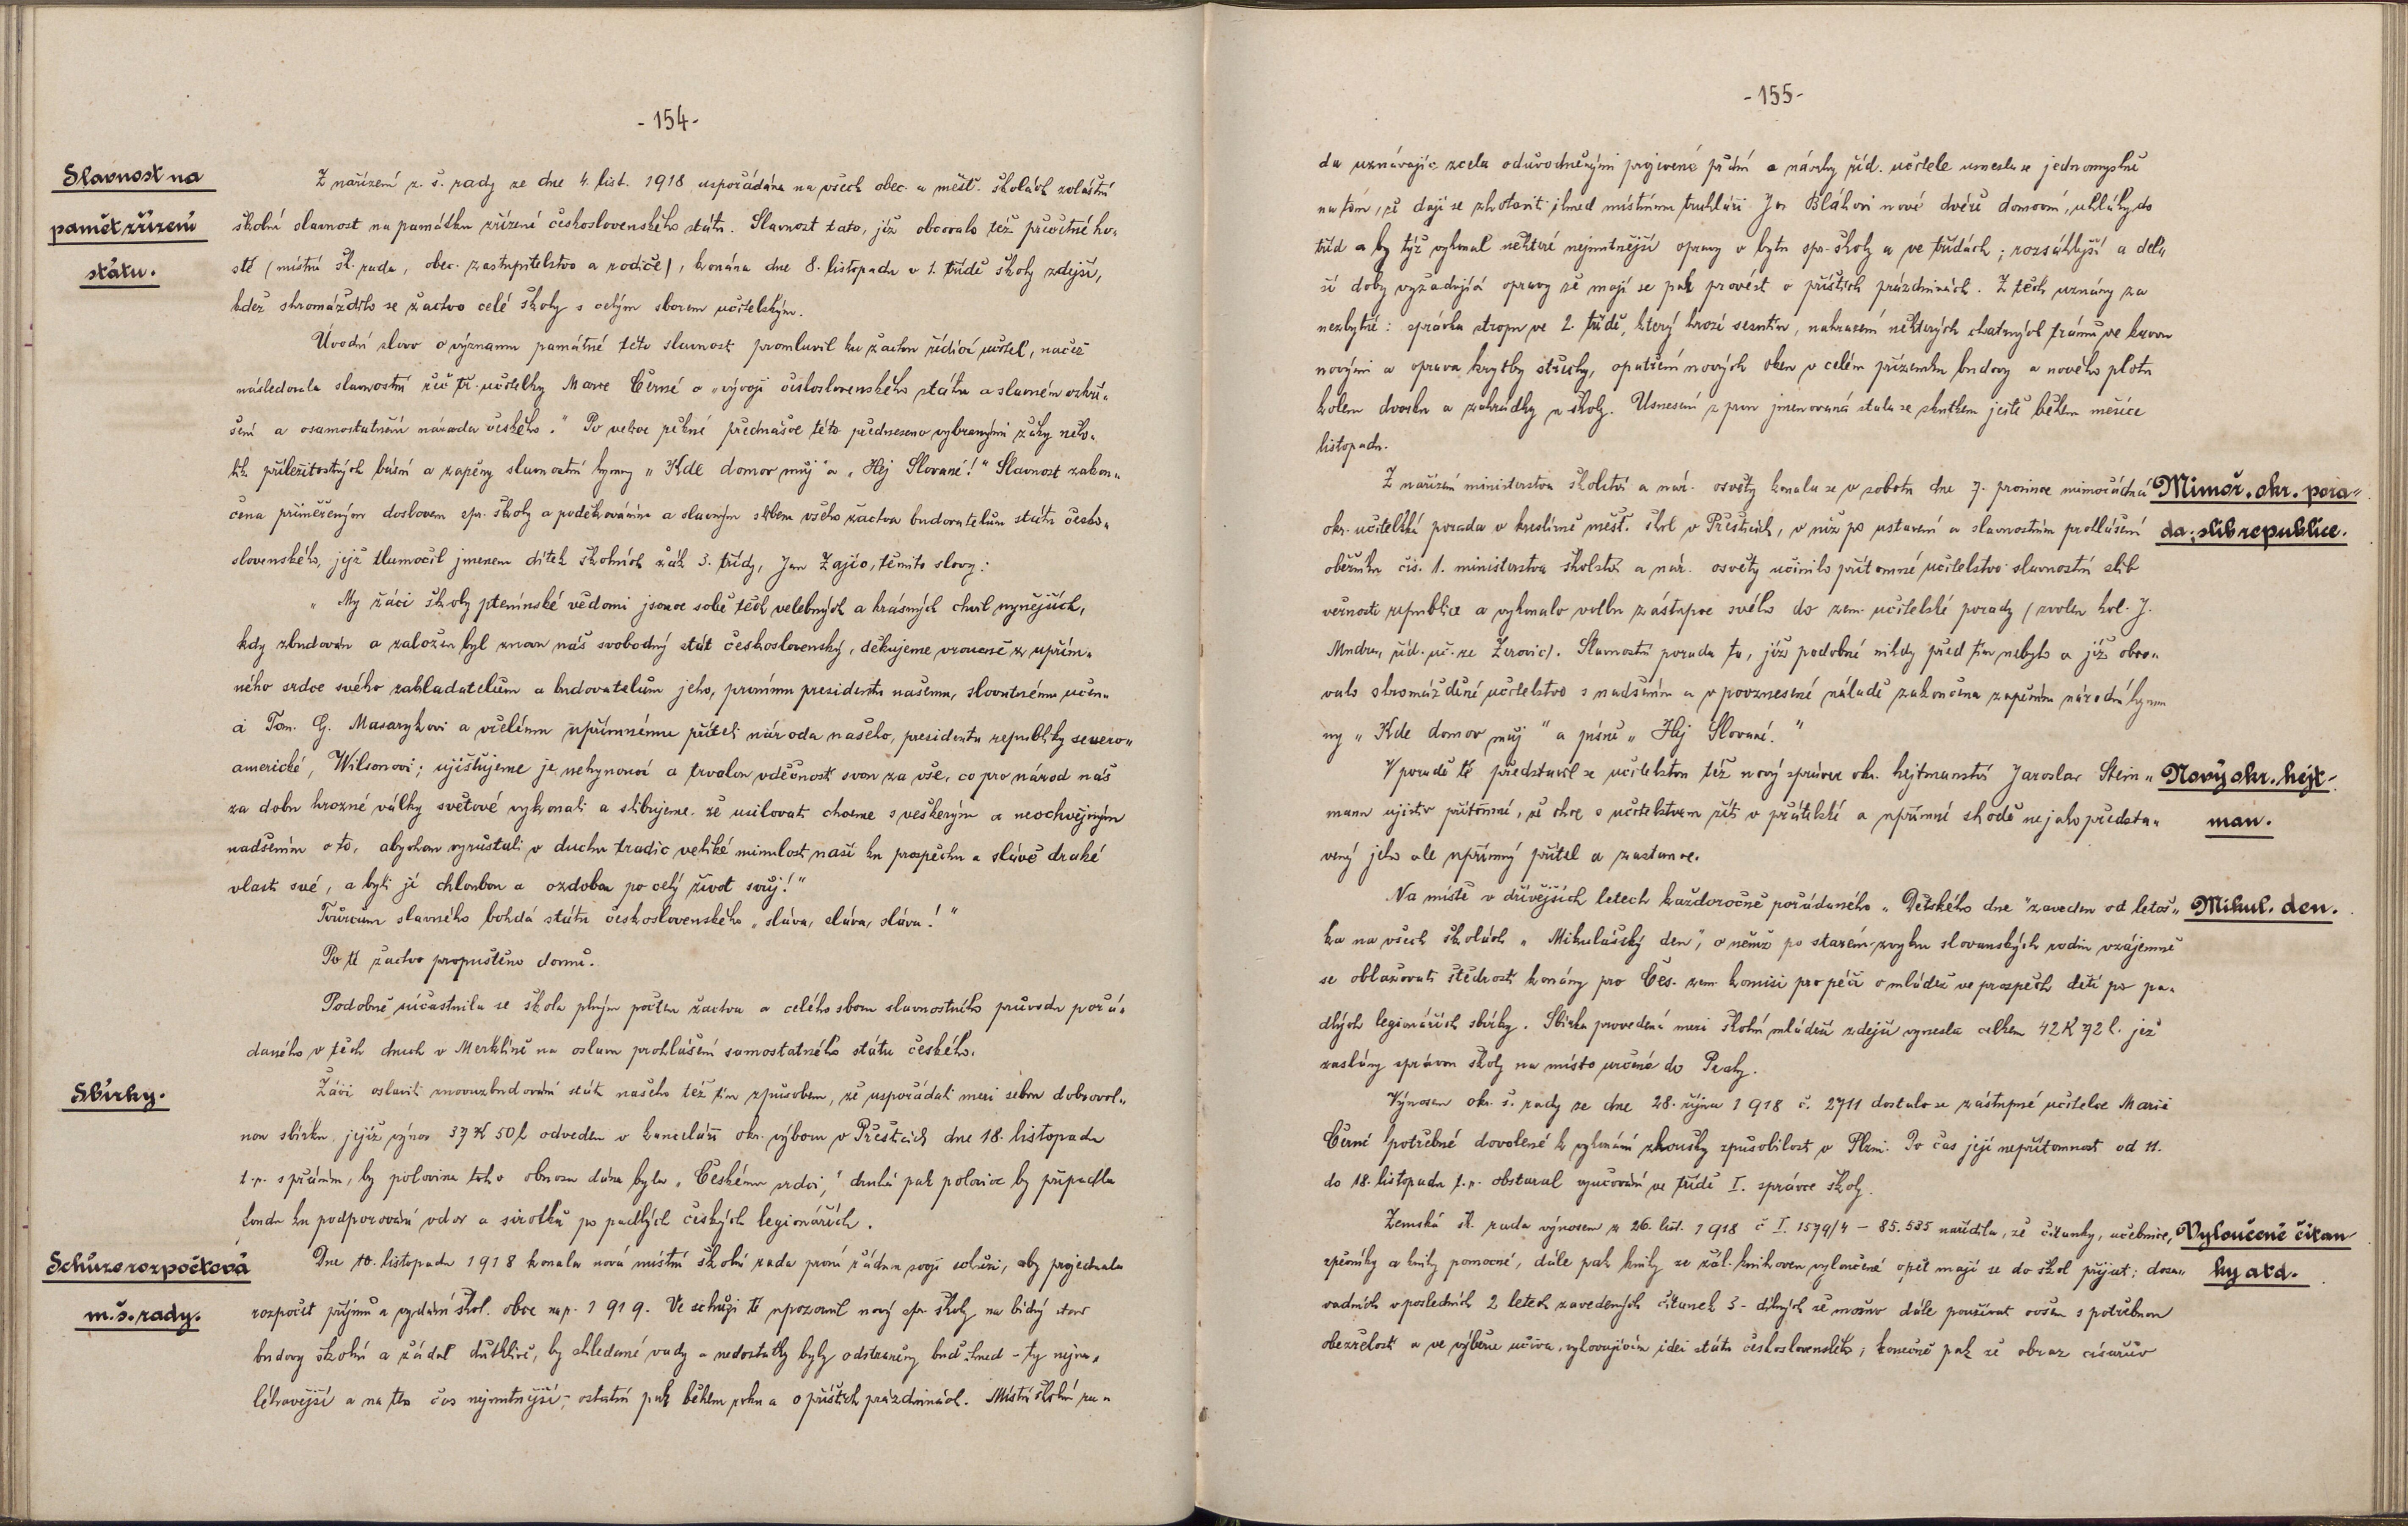 -154-
Slavnost na
paměť zřízení
státu.
Z nařízení z. š. rady ze dne 4. list. 1918 uspořádána na všech obec. a měšť. školách zvláštní
školní slavnost na památku zřízení československého státu. Slavnost tato, jíž obcovalo též přečetné ho„
stě (místní šk. rada, obec. zastupitelstvo a rodiče), konána dne 8. listopadu v 1. třídě školy zdejší,
kdež shromáždilo se žactvo celé školy s celým sborem učitelským.
Úvodní slovo o významu památné této slavnosti promluvil ku žactvu řídící učitel, načež
následovala slavnostní řeč tř. učitelky Marie Černé o „vývoji československého státu a slavném vzkří„
šení a osamostatnění národa českého." Po velice pěkné přednášce této předneseno vybranými žáky něko„
lik příležitostných básní a zapěny slavnostní hymny „Kde domov můj" a „Hej Slované!" Slavnost zakon„
čena přiměřeným doslovem spr. školy a poděkováním a slavným slibem všeho žactva budovatelům státu česko„
slovenského, jejž tlumočil jmenem dítek školních žák 3. třídy, Jan Zajíc, těmito slovy:
„My žáci školy ptenínské vědomi jsouce sobě těch velebných a krásných chvil nynějších,
kdy zbudován a založen byl znovu náš svobodný stát československý, děkujeme vroucně z upřím„
ného srdce svého zakladatelům a budovatelům jeho, prvnímu presidentu našemu, slovutnému učen„
ci Tom. G. Masarykovi a vřelému upřímnému příteli národa našeho, presidentu republiky severo„
americké, Wilsonovi; ujišťujeme je nehynoucí a trvalou vděčností svou za vše, co pro národ náš
za dobu hrozné války světové vykonali a slibujeme, že usilovati chceme s veškerým a neochvějným
nadšením o to, abychom vyrůstali v duchu tradic veliké minulosti naší ku prospěchu a slávě drahé
vlasti své, a byli jí chloubou a ozdobou po celý život svůj!"
Tvůrcům slavného bohdá státu československého „sláva, sláva, sláva!"
Po té žactvo propuštěno domů.
Podobně súčastnila se škola plným počtem žactva a celého sboru slavnostního průvodu pořá„
daného v těch dnech v Merklíně na oslavu prohlášení samostatného státu českého.
Sbírky.
Žáci oslavili znovuzbudování státu našeho též tím způsobem, že uspořádali mezi sebou dobrovol„
nou sbírku, jejíž výnos 37 K 50 h odveden v kanceláři okr. výboru v Přešticích dne 18. listopadu
t. r. s přáním, by polovina toho obnosu dána byla „Českému srdci," druhá pak polovice by připadla
fondu ku podporování vdov a sirotků po padlých českých legionářích.
Schůze rozpočtová
m. š. rady.
Dne 10. listopadu 1918 konala nová místní školní rada první řádnou svoji schůzi, aby projednala
rozpočet příjmů a vydání škol. obce na r. 1919. Ve schůzi té upozornil nový spr. školy na bídný stav
budovy školní a žádal důtklivě, by shledané vady a nedostatky byly odstraněny buď ihned - ty nejna„
léhavější a na ten čas nejnutnější -, ostatní pak během roku a o příštích prázdninách. Místní školní ra„
-155-
da uznávajíc zcela odůvodněnými projevená přání a návrhy říd. učitele usnesla se jednomyslně
na tom, že dají se zhotoviti ihned místnímu truhláři Jos. Bláhovi nové dvéře domovní, uhláky do
tříd a by týž vykonal některé nejnutnější opravy v bytu spr. školy a ve třídách; rozsáhlejší a del„
ší doby vyžadující opravy že mají se pak provést o příštích prázdninách. Z těch uznány za
nezbytné: správka stropu ve 2. třídě, který hrozí sesutím, nahrazení některých chatrných trámů ve krovu
novými a oprava krytby střechy, opatření nových oken v celém přízemku budovy a nového plotu
kolem dvorku a zahrádky u školy. Usnesení z prvu jmenovaná stala se skutkem ještě během měsíce
listopadu.
Mimoř. okr. pora„
da; slib republice.
Z nařízení ministerstva školství a nár. osvěty konala se v sobotu dne 7. prosince mimořádná
okr. učitelská porada v kreslírně měšť. škol v Přešticích, v níž po ustavení a slavnostním prohlášení
oběžníku čís. 1. ministerstva školství a nár. osvěty učinilo přítomné učitelstvo slavnostní slib
věrnosti republice a vykonalo volbu zástupce svého do zem. učitelské porady (zvolen kol. J.
Mudra, říd. uč. ze Žerovic). Slavnostní porada ta, jíž podobné nikdy před tím nebylo a jíž obco„
valo shromážděné učitelstvo s nadšením a v povznesené náladě zakončena zapěním národní hym
ny „Kde domov můj" a písně „Hej Slované."
Nový okr. hejt-
man.
V poradě té představil se učitelstvu též nový správce okr. hejtmanství Jaroslav Stein„
mann ujistiv přítomné, že chce s učitelstvem žíti v přátelské a upřímné shodě ne jako předsta„
vený jeho ale upřímný přítel a zastance.
Mikul. den.
Na místě v dřívějších letech každoročně pořádaného „Dětského dne" zaveden od letoš„
ka na všech školách „Mikulášský den", o němž po starém zvyku slovanských rodin vzájemně
se oblažovati štědrostí konány pro Čes. zem. komisi pro péči o mládež ve prospěch dětí po pa„
dlých legionářích sbírky. Sbírka provedená mezi školní mládeží zdejší vynesla celkem 42 K 72 h. jež
zaslány správou školy na místo určené do Prahy.
Výnosem okr. š. rady ze dne 28. října 1918 č. 2711 dostalo se zástupné učitelce Marii
Černé potřebné dovolené k vykonání zkoušky způsobilosti v Plzni. Po čas její nepřítomnosti od 11.
do 18. listopadu t. r. obstaral vyučování ve třídě I. správce školy.
Vyloučené čítan
ky atd.
Zemská šk. rada výnosem z 26. list. 1918 č I. 1579/4 - 85.535 nařídila, že čítanky, učebnice,
zpěvníky a knihy pomocné, dále pak knihy ze žák. knihoven vyloučené opět mají se do škol přijat; dosa„
vadních v posledních 2 letech zavedených čítanek 3-dílných že možno dále používat ovšem s potřebnou
obezřelostí a ve výběru učiva, vyhovujícím idei státu československého; konečně pak že obraz císařův